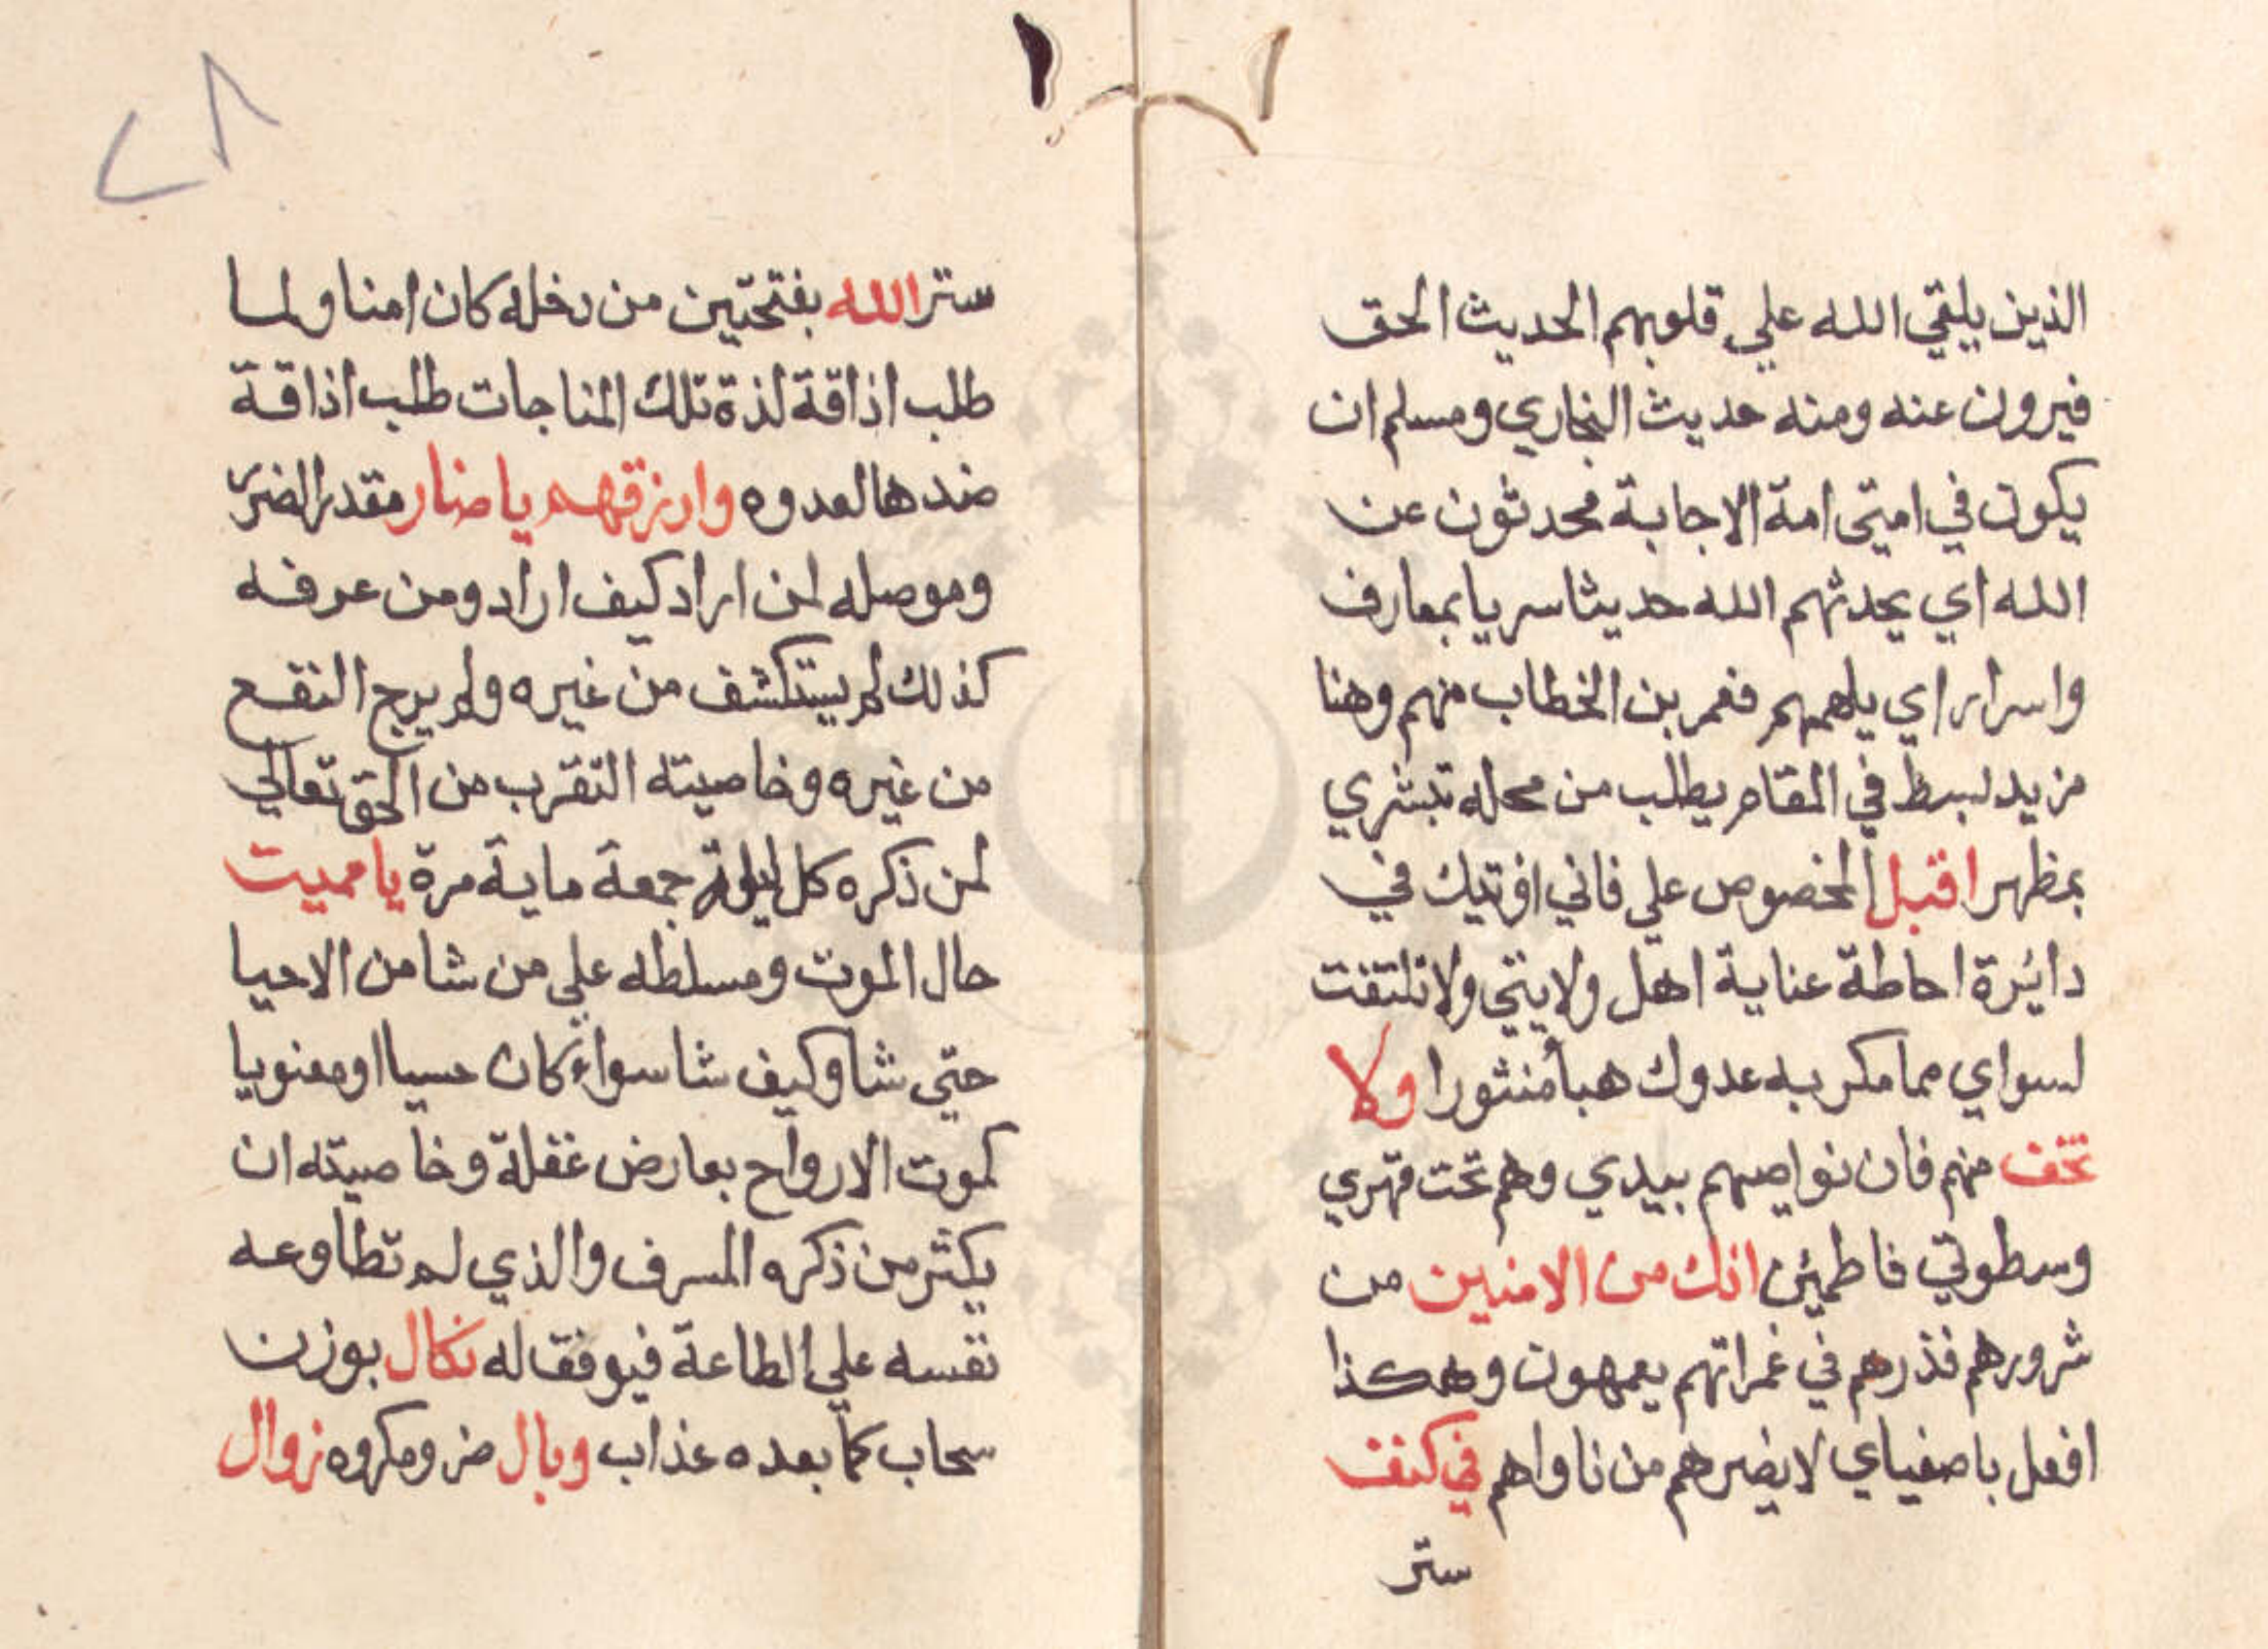 الذين يلقي الله علي قلوبهم الحديث الحق
فيرون عنه ومنه حديث البخاري ومسلم ان
يكون في امتي امة الاجابة محدثون عن
الله اي يحدثهم الله حديثا سريا بمعارف
واسرار اي يلهمهم فعمر بن الخطاب منهم وهنا
مزيد لبسط في المقام يطلب من محله تبشري
بمظهر اقبل المخصوص علي فاني افتيك في
دائرة احاطة عناية اهل ولايتي ولا تلتفت
لسواي مما مكر به عدوك هبا منثورا ولا
تخف منهم فان نواصيهم بيدي وهم تحت قهري
وسطوتي فاطمئن انك من الامنين من
شرورهم فذرهم في غمراتهم يعمهون وهكذا
افعل باصفياي لا يضرهم من ناواهم في كنف
ستر
٢٨
ستر الله بفتحتين من دخله كان امنا ولما
طلب اذاقة لذة تلك المناجات طلب اذاقة
ضدها لعدوه وارزقهم يا ضار مقدر الضر
وموصله لمن اراد كيف اراد ومن عرفه
كذلك لم يستكشف من غيره ولم يرج النفع
من غيره وخاصيته التقرب من الحق تعالي
لمن ذكره كل ليلة جمعة ماية مرة يا مميت
حال الموت ومسلطه علي من شا من الاحيا
حتي شا وكيف شا سواء كان حسيا او معنويا
كموت الارواح بعارض غفلة وخاصيته ان
يكثر من ذكره المسرف والذي لم تطاوعه
نفسه علي الطاعة فيوفق له نكال بوزن
سحاب كما بعده عذاب وبال ضر ومكروه زوال